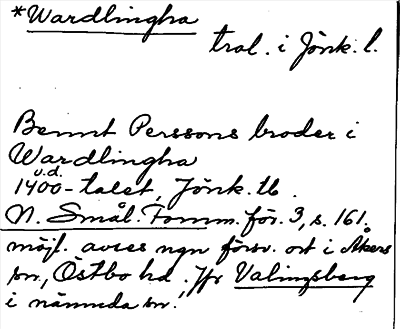 *Wardlingha
trol. i Jönk. l.
Bennt Perssons broder i
Wardlingha
u.d.
1400-talet, Jönk. tb.
N. Smål. Fornm. för. 3, s. 161.
möjl. avses ngn försv. ort i Åkers
sn., Östbo hd. Jfr Valingsberg
i nämnda sn.